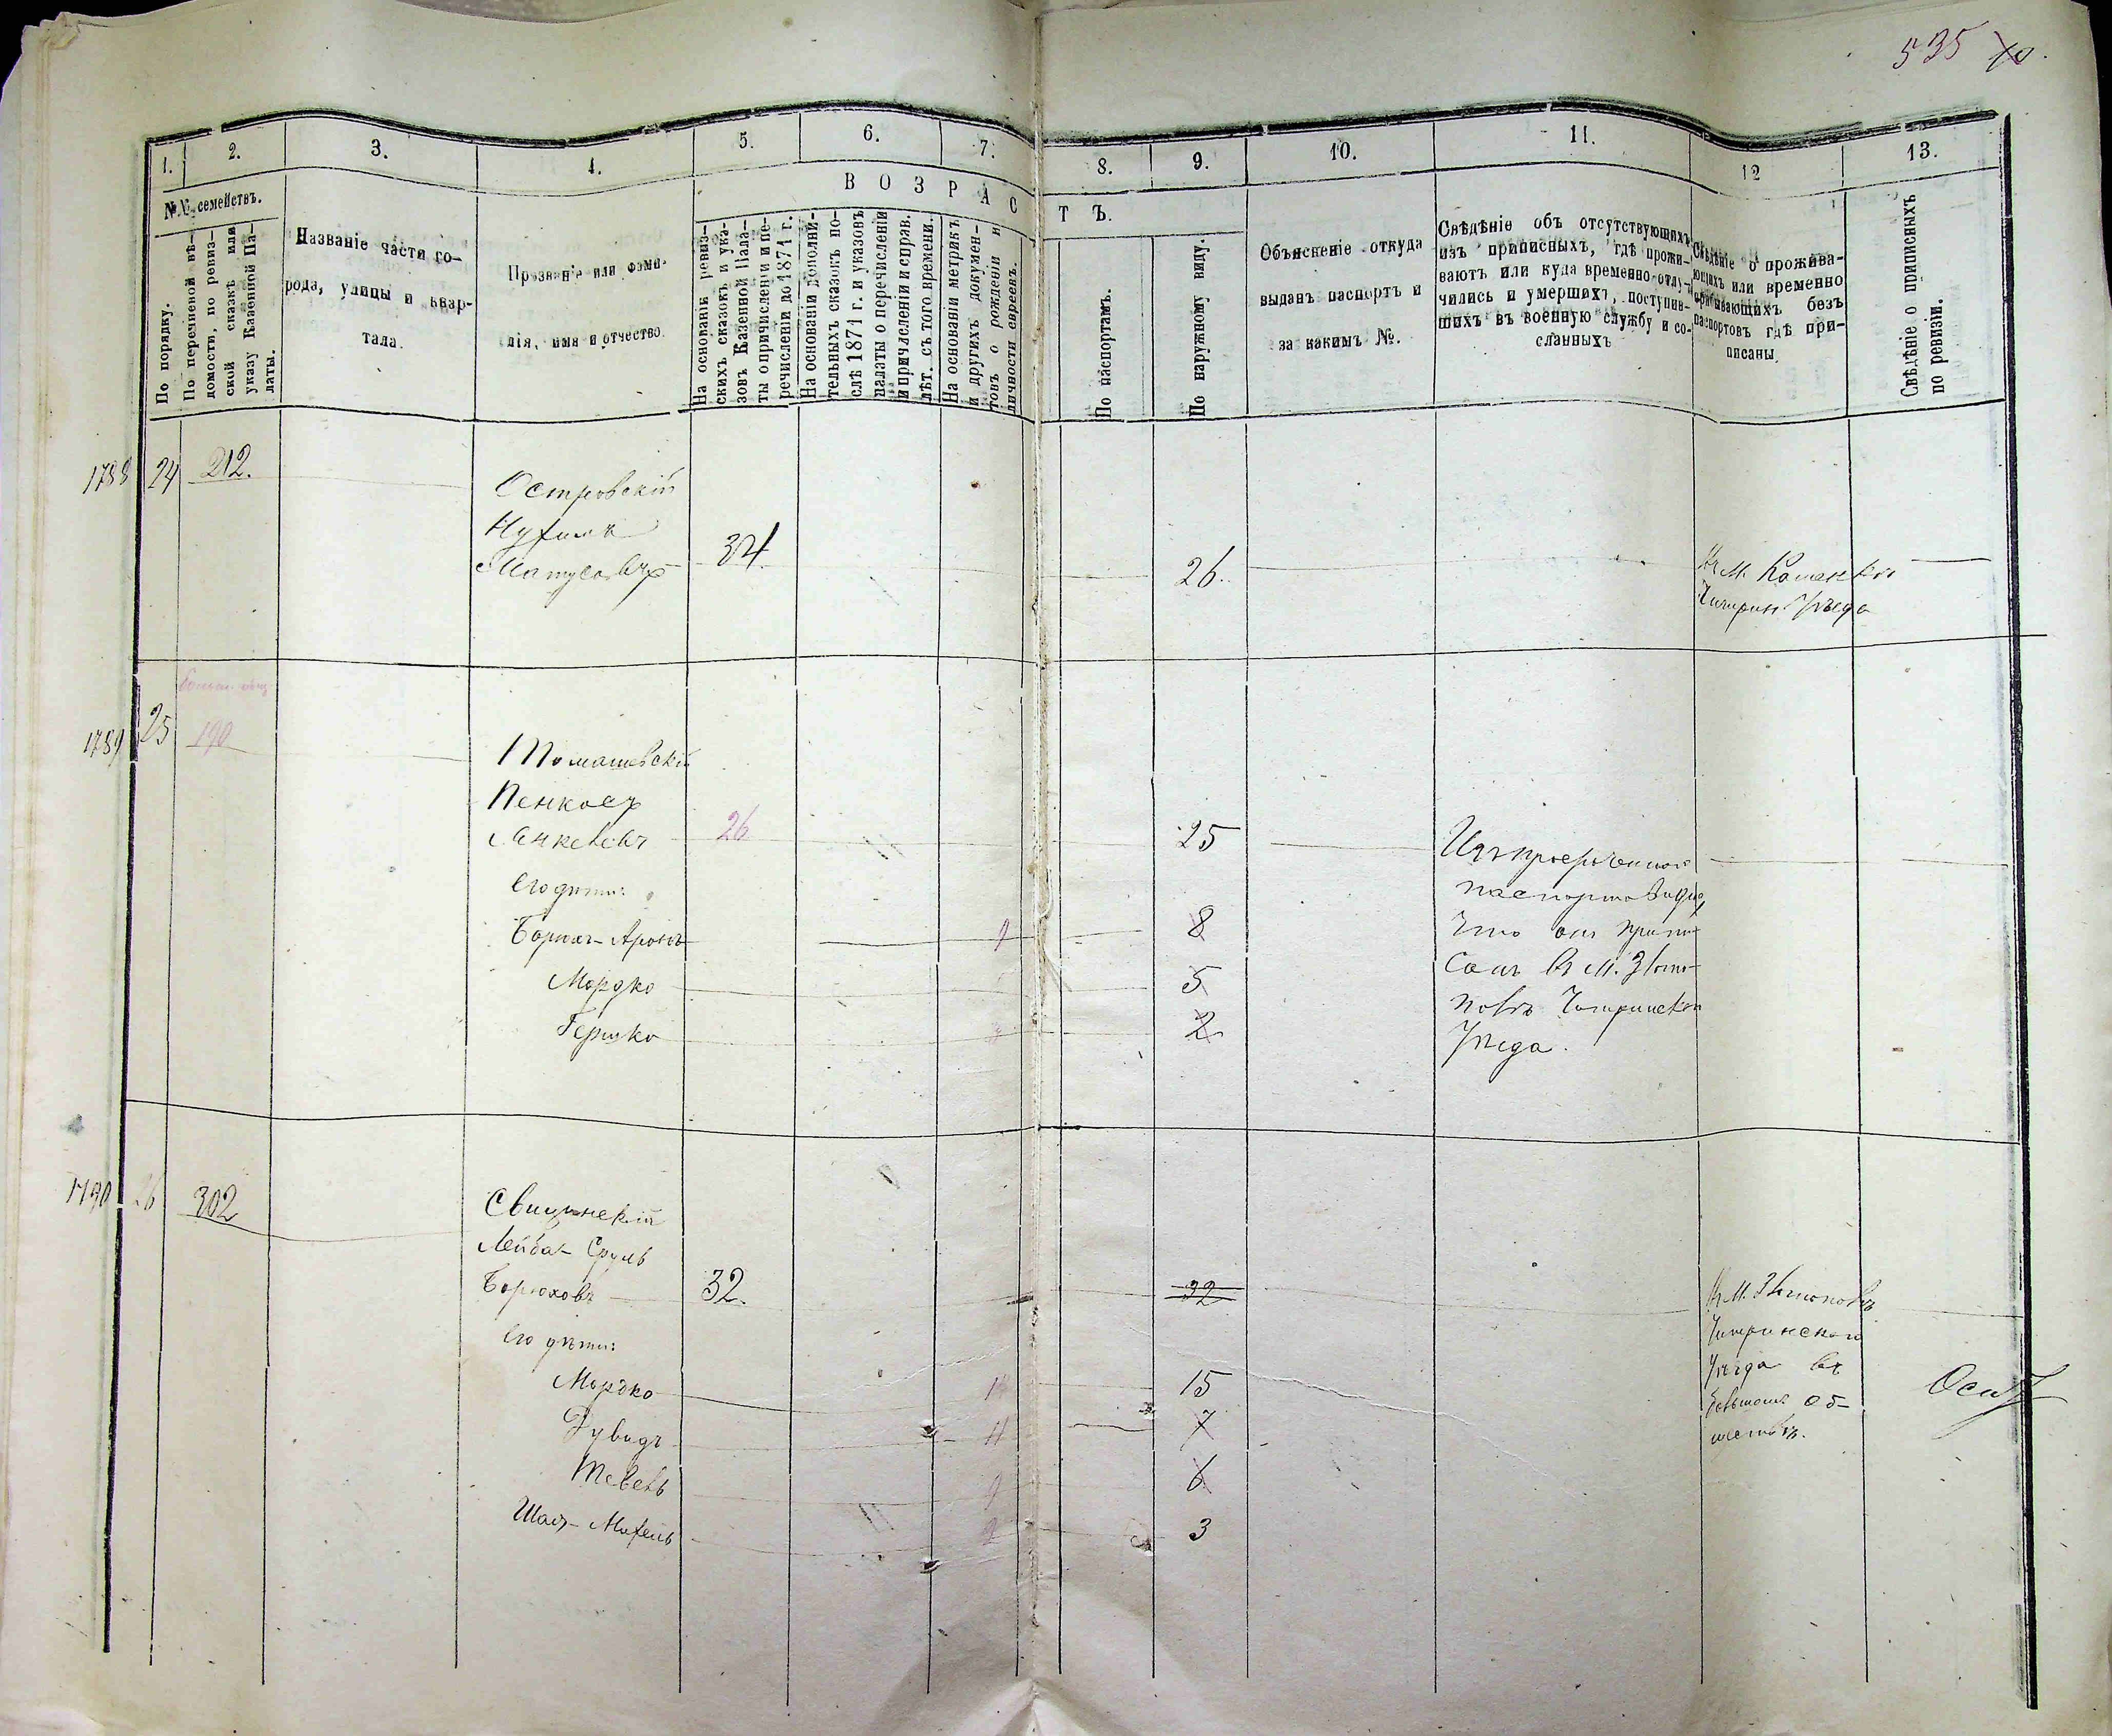 535
1.
2.
3.
4.
5.
6.
7.
8.
9.
10.
11.
12
13.
№№ семействъ.
В О З Р А С Т Ъ.
По порядку.
По перечневой вѣ-
домости, по ревиз-
ской сказкѣ или
указу Казенной Па-
латы.
Названіе части го-
рода, улицы и квар-
тала.
Прозваніе или фами-
лія, имя и отчество.
На основаніи ревиз-
скихъ сказокъ и ука-
зовъ Казенной Пала-
ты о причисленіи и пе-
речисленіи до 1871 г.
На основаніи дополни-
тельныхъ сказокъ по-
слѣ 1871 г. и указовъ
палаты о перечисленіи
и причисленіи и справ.
лѣт. съ того времени.
На основаніи метрикъ
и другихъ докумен-
товъ о рожденіи и
личности евреевъ.
По паспортамъ.
По наружному виду.
Объясненіе откуда
выданъ паспортъ и
за какимъ №.
Свѣдѣніе объ отсутствующихъ
изъ приписныхъ, гдѣ прожи-
ваютъ или куда временно отлу-
чились и умершихъ, поступив-
шихъ въ военную службу и со-
сланныхъ
Свѣдѣніе о прожива-
ющихъ или временно
проживающихъ безъ
паспортовъ гдѣ при-
писаны
Свѣдѣніе о приписныхъ
по ревизіи.
1788 24 212.
Островскій
Нухимъ
Матусовъ 34. 26.
Въ М. Каменкѣ
Чигирин. Уѣзда
1789 25 190
Томашевскій
Пенкосъ
Янкелевъ 26 25
Его дѣти:
Борухъ-Аронъ 9 8
Мордко 5
Гершко 2
Изъ просроченнаго
паспорта видно
что онъ припи-
санъ въ М. Злато-
полѣ Чигиринскаго
Уѣзда.
1790 26 302
Свицинскій
Лейба-Сруль
Боруховъ 32. 32
Его дѣти:
Мордко 15
Дувидъ 11 7
Тевель 9 6
Шая-Михель 2 3
Въ М. Златополѣ
Чигиринскаго
Уѣзда въ
бывшемъ об-
ществѣ.